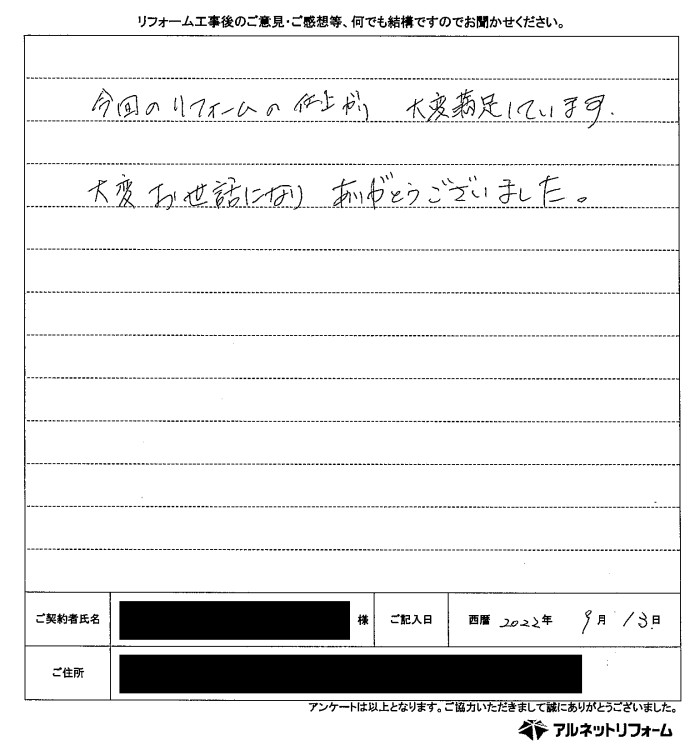 リフォーム工事後のご意見・ご感想等、何でも結構ですのでお聞かせください。
今回のリフォームの仕上がり 大変満足しています.
大変お世話になり ありがとうございました。
ご契約者氏名 様 ご記入日 西暦 2022年 9月 13日
ご住所
アンケートは以上となります。ご協力いただきまして誠にありがとうございました。
アルネットリフォーム